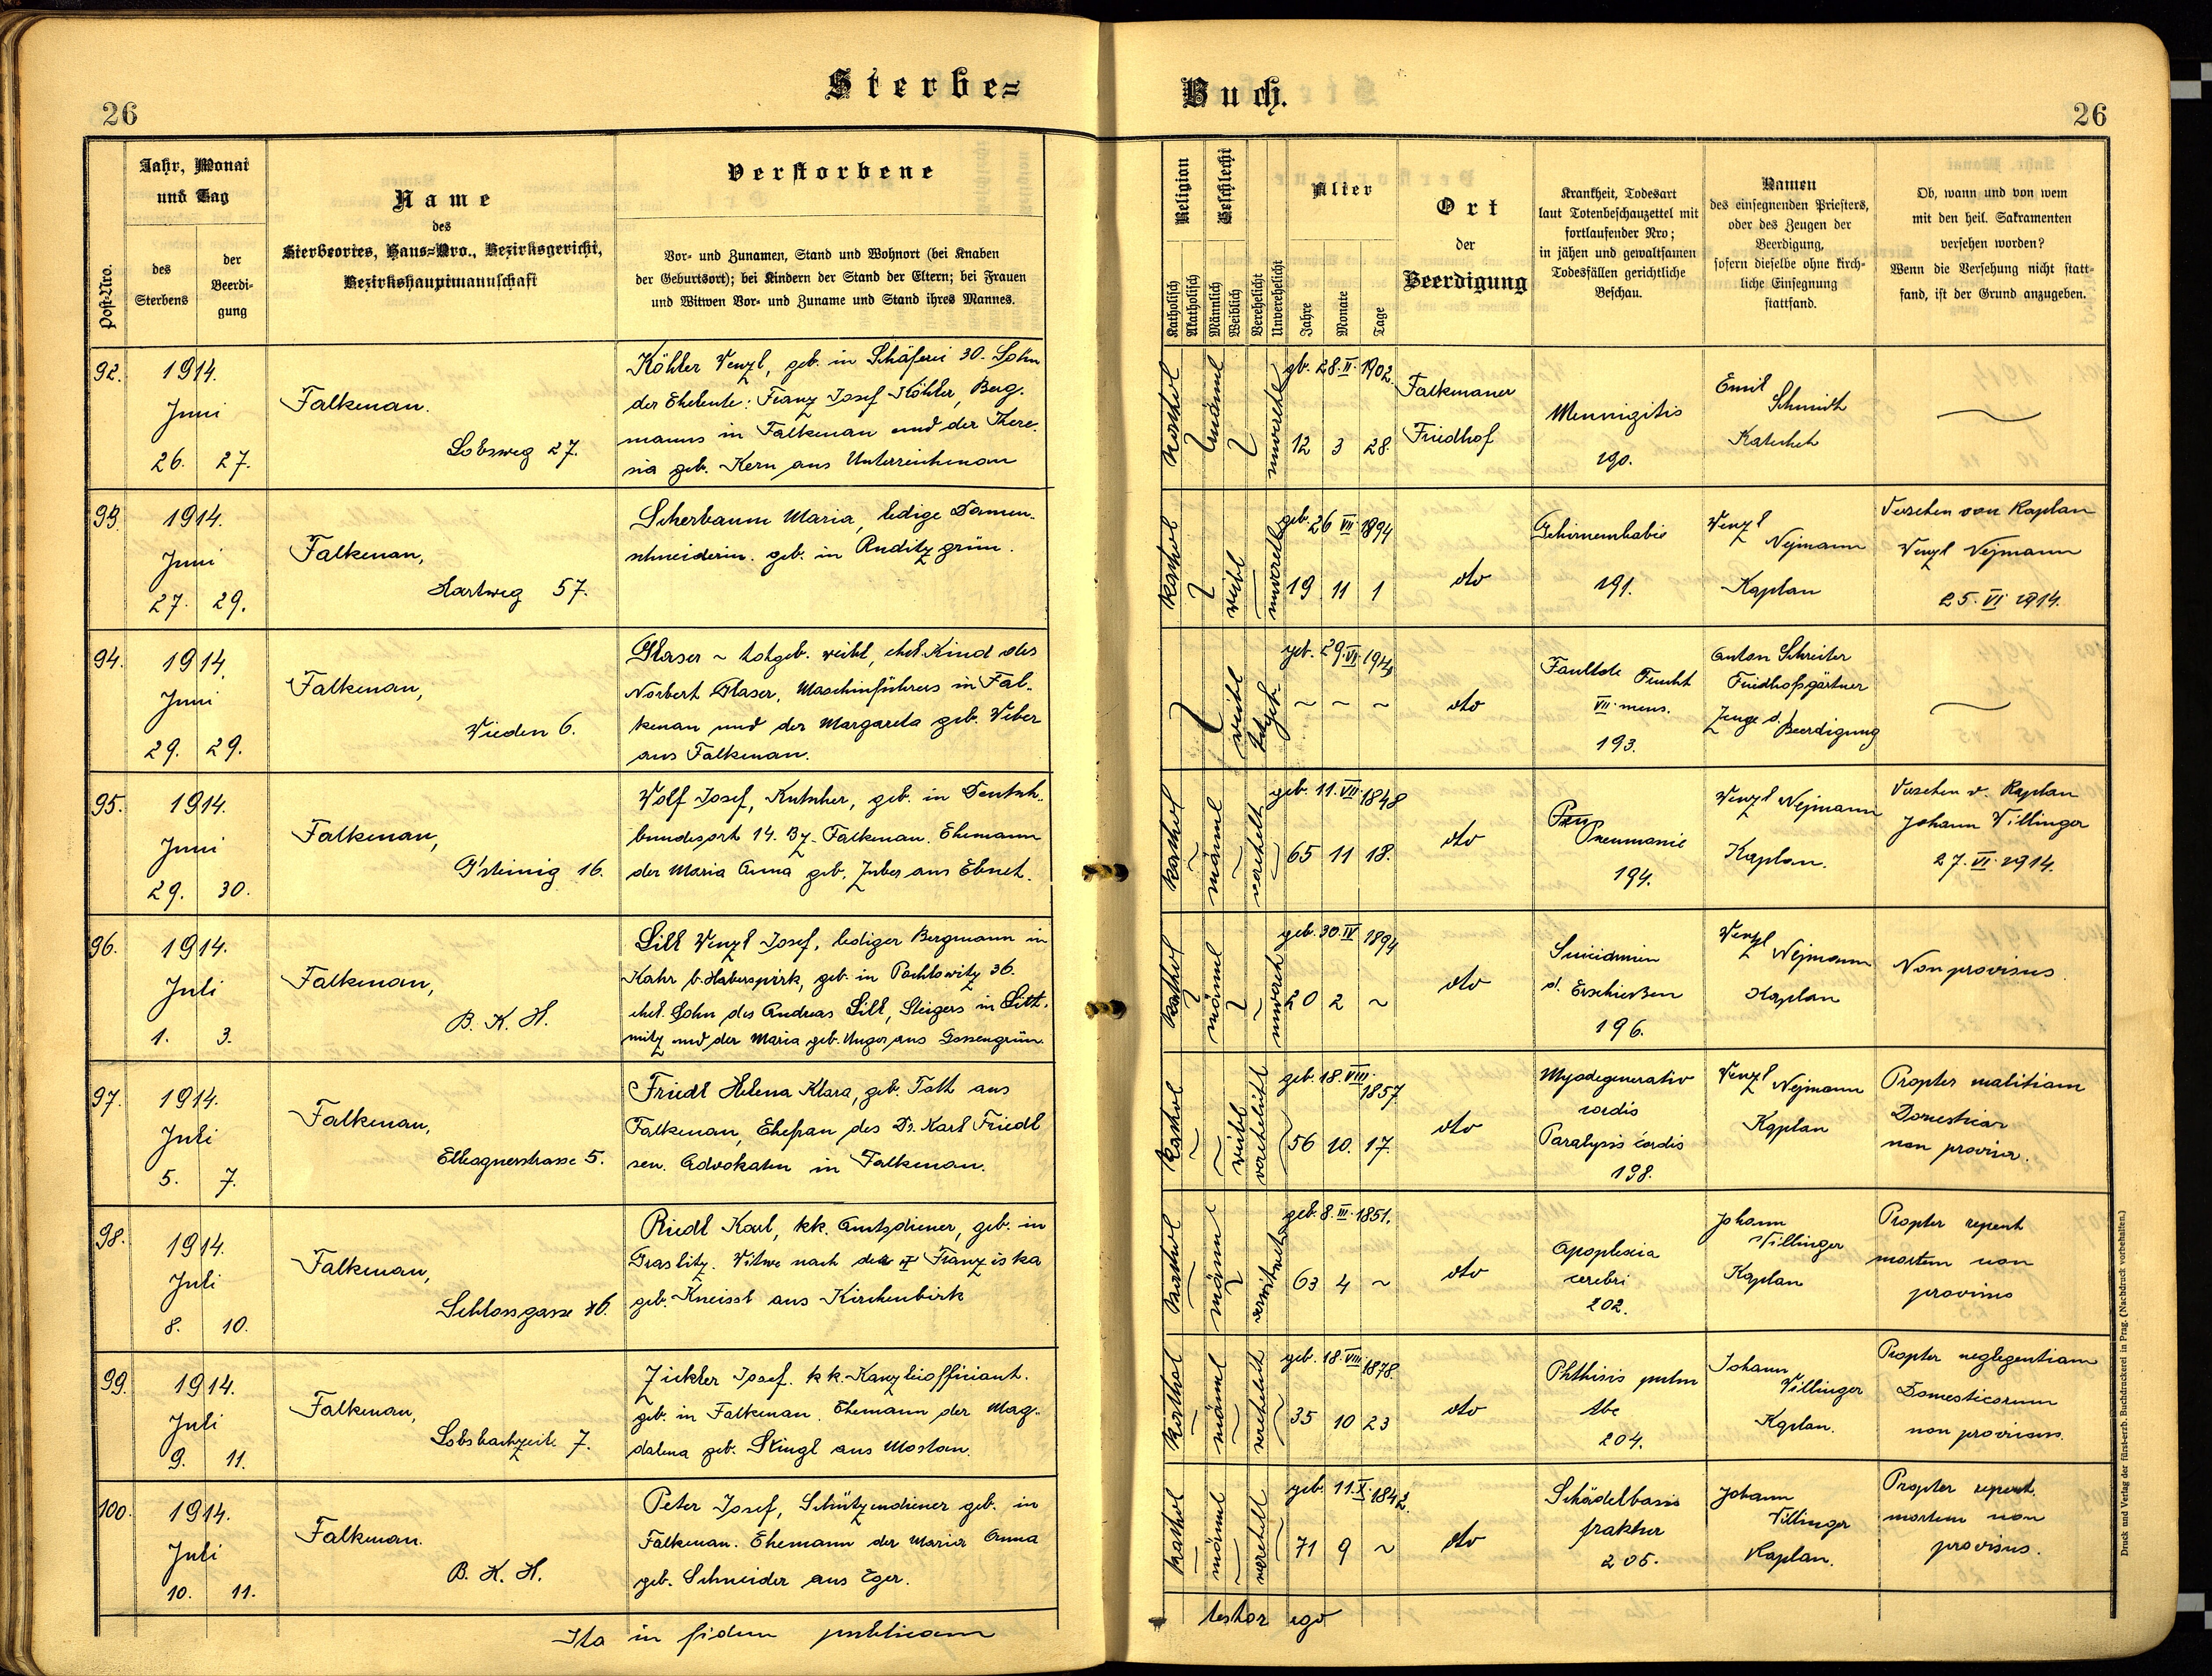 Sterbe=
Buch.
26
26
Post-Nro.
Jahr, Monat
und Tag
des
Sterbens
der
Beerdi-
gung
Name
des
Sterbeortes, Haus=Nro., Bezirksgericht,
Bezirkshauptmannschaft
Verstorbene
Vor- und Zunamen, Stand und Wohnort (bei Knaben
der Geburtsort); bei Kindern der Stand der Eltern; bei Frauen
und Witwen Vor- und Zuname und Stand ihres Mannes.
Religion
Katholisch
Akatholisch
Geschlecht
Männlich
Weiblich
Verehelicht
Unverehelicht
Alter
Jahre
Monate
Tage
Ort
der
Beerdigung
Krankheit, Todesart
laut Totenbeschauzettel mit
fortlaufender Nro;
in jähen und gewaltsamen
Todesfällen gerichtliche
Beschau.
Namen
des einsegnenden Priesters,
oder des Zeugen der
Beerdigung,
sofern dieselbe ohne kirch-
liche Einsegnung
stattfand.
Ob, wann und von wem
mit den heil. Sakramenten
versehen worden?
Wenn die Versehung nicht statt-
fand, ist der Grund anzugeben.
92.
1914.
Juni
26. 27.
Falkenau.
Lobsweg 27.
Köhler Wenzl, geb. in Schäferei 30. Sohn
der Eheleute: Franz Josef Köhler, Berg-
manns in Falkenau und der There-
sia geb. Kern aus Unterreichenau
kathol
männl
unverehel
gb. 28. II. 1902.
12 3 28.
Falkenauer
Friedhof
Meningitis
190.
Emil
Schmidt
Katechet
93.
1914.
Juni
27. 29.
Falkenau,
Hartweg 57.
Scherbaum Maria, ledige Damen-
schneiderin. geb. in Ruditzgrün.
kathol
weibl
unverehel
geb. 26 VII 1894
19 11 1
dto
191.
Wenzl
Nejmann
Kaplan
Versehen von Kaplan
Wenzl Nejmann
25. VI 1914.
94.
1914.
Juni
29. 29.
Falkenau,
Wieden 6.
Glaser ~ totgeb. weibl, ehel. Kind des
Norbert Glaser, Maschinführers in Fal-
kenau und der Margareta geb. Weber
aus Falkenau.
weibl
totgeb.
geb. 29. VI. 1914
~ ~ ~
dto
Faultote Frucht
VII. mens.
193.
Anton Schreiter
Friedhofsgärtner
Zeuge d. Beerdigung
95.
1914.
Juni
29. 30.
Falkenau,
G'steinig 16.
Wolf Josef, Kutscher, geb. in Deutsch-
bundesort 14. Bz. Falkenau. Ehemann
der Maria Anna geb. Zuber aus Ebnet.
kathol
männl
verehel
geb. 11. VII. 1848
65 11 18.
dto
Pneumonie
194.
Wenzl Nejmann
Kaplan.
Versehen v. Kaplan
Johann Villinger
27. VI. 1914.
96.
1914.
Juli
1. 3.
Falkenau,
B. K. H.
Lill Wenzl Josef, lediger Bergmann in
Kahr b. Haberspirk, geb. in Pochlowitz 36.
ehel. Sohn des Andreas Lill, Steigers in Litt-
mitz und der Maria geb. Unger aus Gossengrün.
kathol
männl
unvereh
geb. 30. IV 1894
20 2 ~
dto
Suicidium
d. Erschießen
196.
Wenzl
Nejmann
Kaplan
Non provisus.
97.
1914.
Juli
5. 7.
Falkenau,
Elbognerstrasse 5.
Friedl Helena Klara, geb. Toth aus
Falkenau, Ehefrau des Dr. Karl Friedl
sen. Advokaten in Falkenau.
kathol
weibl
verehelicht
geb. 18. VIII.
1857
56 10. 17.
dto
Myodegeneratio
cordis
Paralysis cordis
198.
Wenzl Nejmann
Kaplan
Propter malitiam
non provisa.
98.
1914.
Juli
8. 10.
Falkenau,
Schlossgasse 6.
Riedl Karl, kk. Amtsdiener, geb. in
Graslitz. Witwe nach der † Franziska
geb. Kneissl aus Kirchenbirk
kathol
männl
verwitwet
geb. 8. III. 1851.
63 4 ~
dto
Apoplexia
cerebri
202.
Johann
Villinger
Kaplan
Propter repent
mortem non
provisus
99.
1914.
Juli
9. 11.
Falkenau,
Lobsbachzeile 7.
Zickler Josef. kk. Kanzleiofficiant.
geb. in Falkenau. Ehemann der Mag-
dalena geb. Stingl aus Mostau.
kathol
männl
verehelicht
geb. 18. VIII 1878.
35 10 23
dto
Phthisis pulm
tbc
204.
Johann
Villinger
Kaplan.
Propter neglegentiam
Domesticorum
non provisus.
100.
1914.
Juli
10. 11.
Falkenau.
B. K. H.
Peter Josef, Schützendiener geb. in
Falkenau. Ehemann der Maria Anna
geb. Schneider aus Eger.
kathol
männl
verehel
geb. 11. X. 1842.
71 9 ~
dto
Schädelbasis
fraktur
205.
Johann
Villinger
Kaplan.
Propter repent.
mortem non
provisus.
Ita in fidem publicam
testor ego
Druck und Verlag der fürst-erzb. Buchdruckerei in Prag. (Nachdruck vorbehalten.)